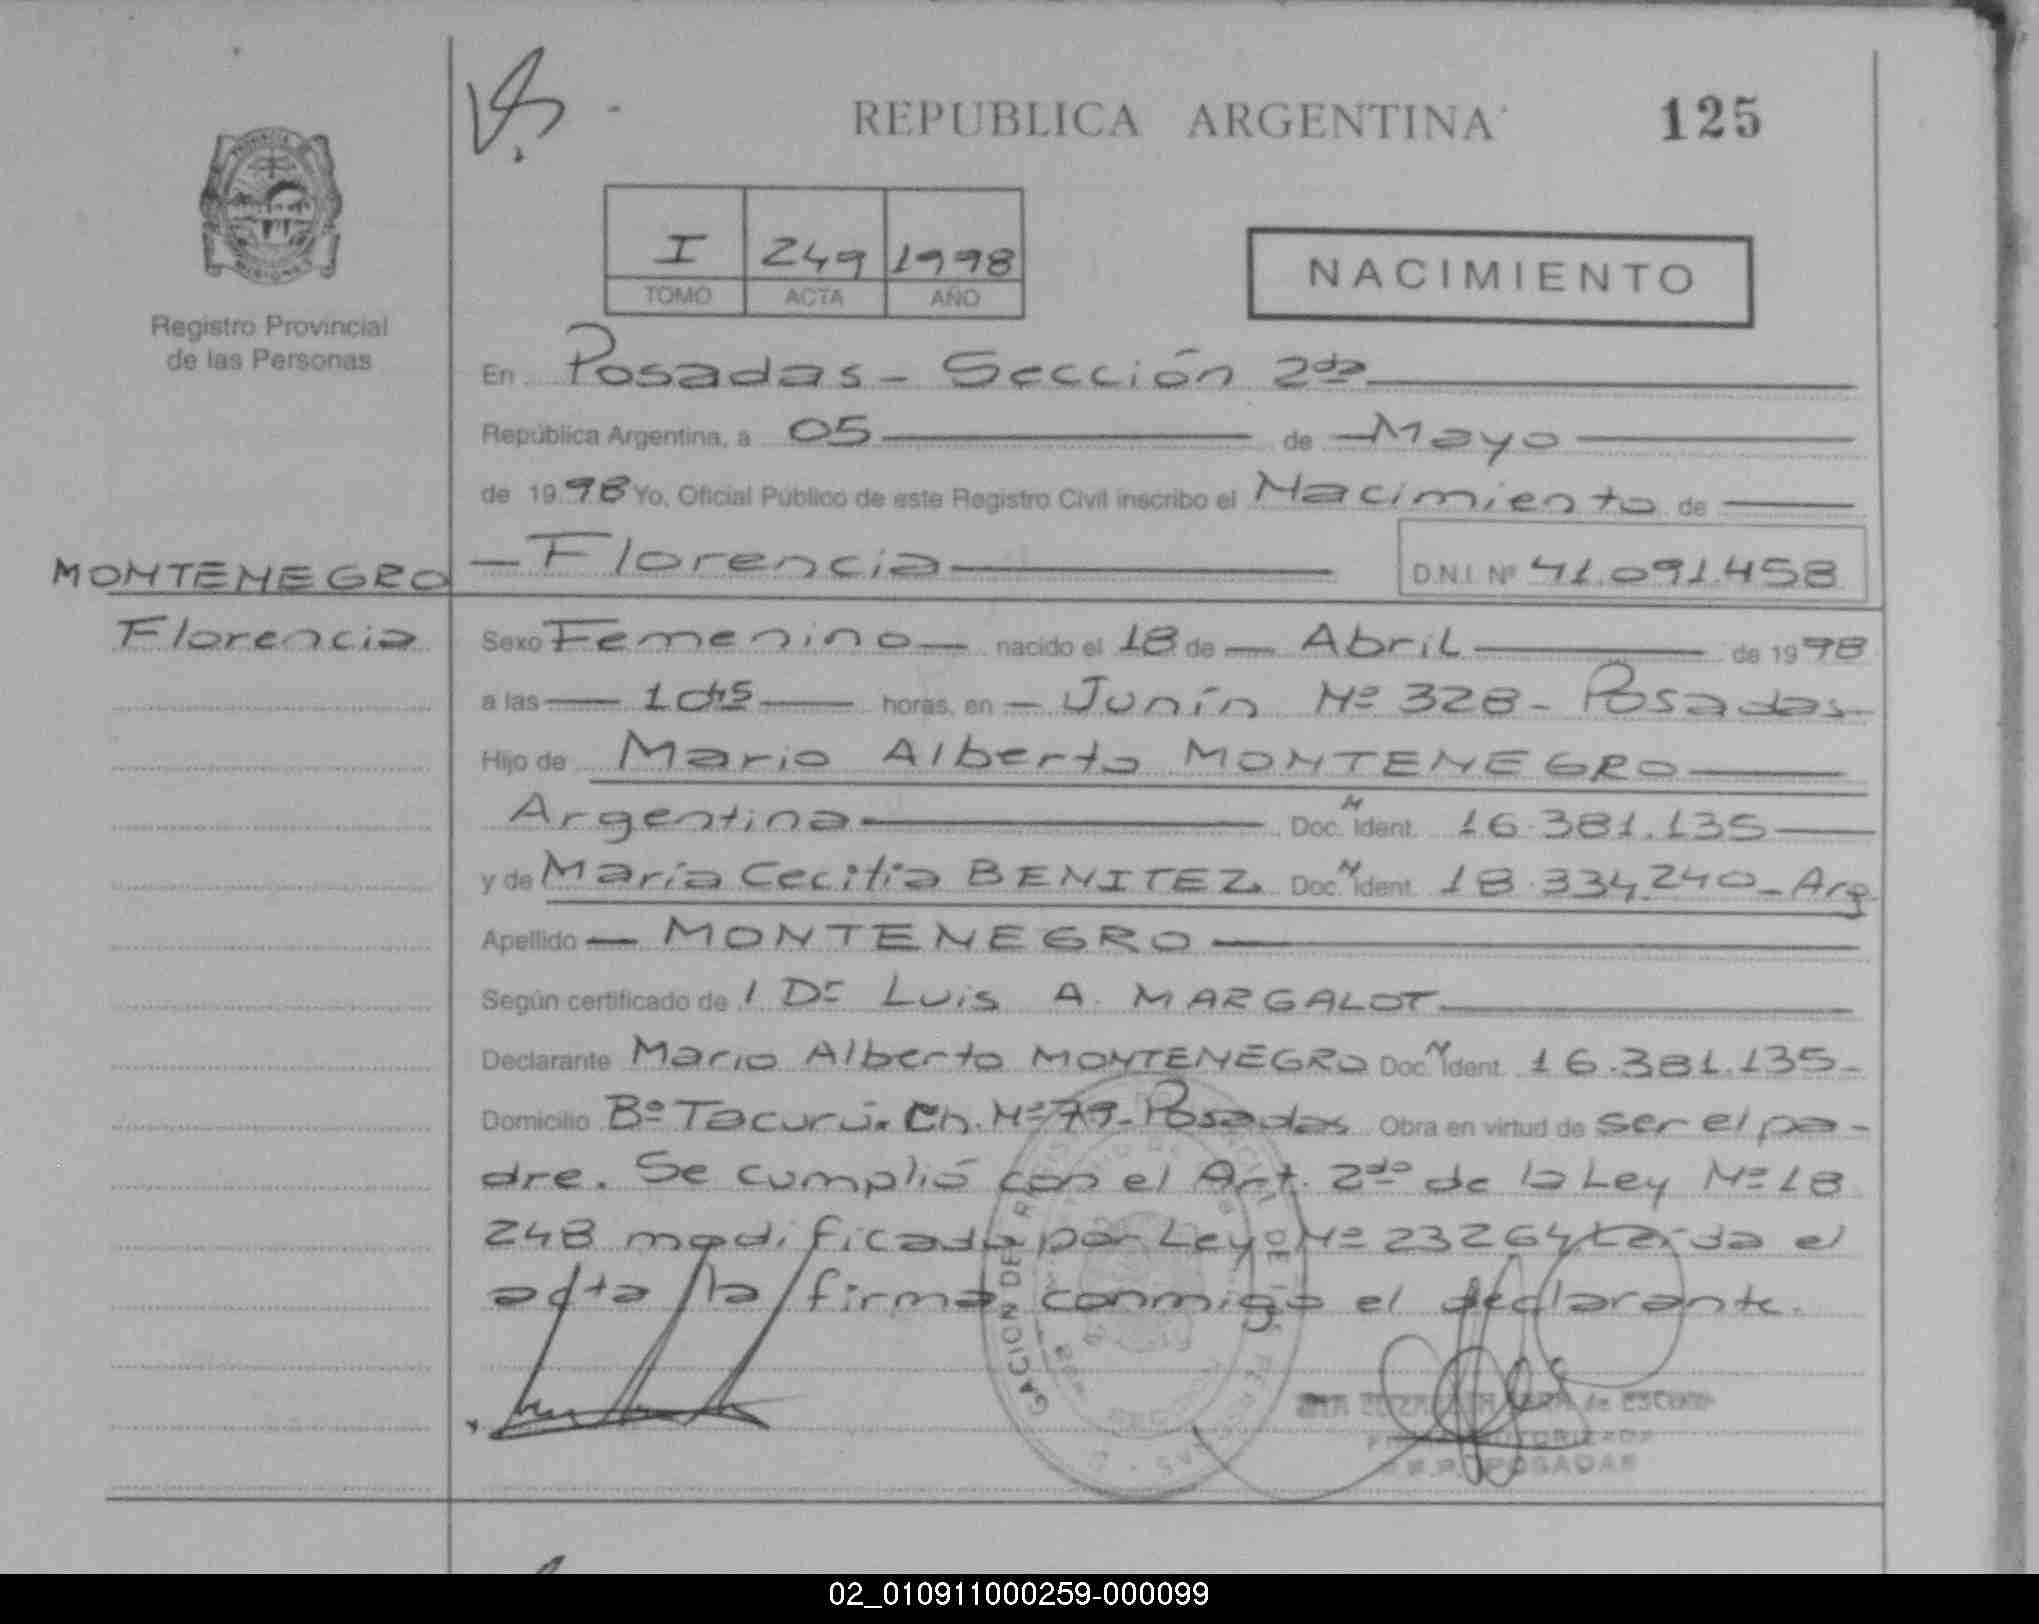 REPUBLICA ARGENTINA 125
I 249 1998
TOMO ACTA AÑO
NACIMIENTO
PROVINCIA
MISIONES
Registro Provincial
de las Personas
En Posadas - Sección 2da
República Argentina, a 05 de Mayo
de 1998 Yo, Oficial Público de este Registro Civil inscribo el Nacimiento de
MONTENEGRO
Florencia
Florencia D.N.I. Nº 41.091.458
Sexo Femenino nacido el 18 de Abril de 1998
a las horas, en Junín Nº 328 - Posadas
Hijo de Mario Alberto MONTENEGRO
Argentina Doc. Ident. 16.381.135
y de María Cecilia BENITEZ Doc. Ident. 18.334.240 - Arg
Apellido MONTENEGRO
Según certificado de 1 Dr Luis A. MARGALOT
Declarante Mario Alberto MONTENEGRO Doc. Ident. 16.381.135-
Domicilio Bº Tacurú. Ch. Nº 79 - Posadas Obra en virtud de ser el pa-
dre. Se cumplió con el Art. 2do de la Ley Nº 18
248 modificada por Ley Nº 23264 Leída el
acta la firma conmigo el declarante.
de ESCOBAR
POSADAS
02_010911000259-000099